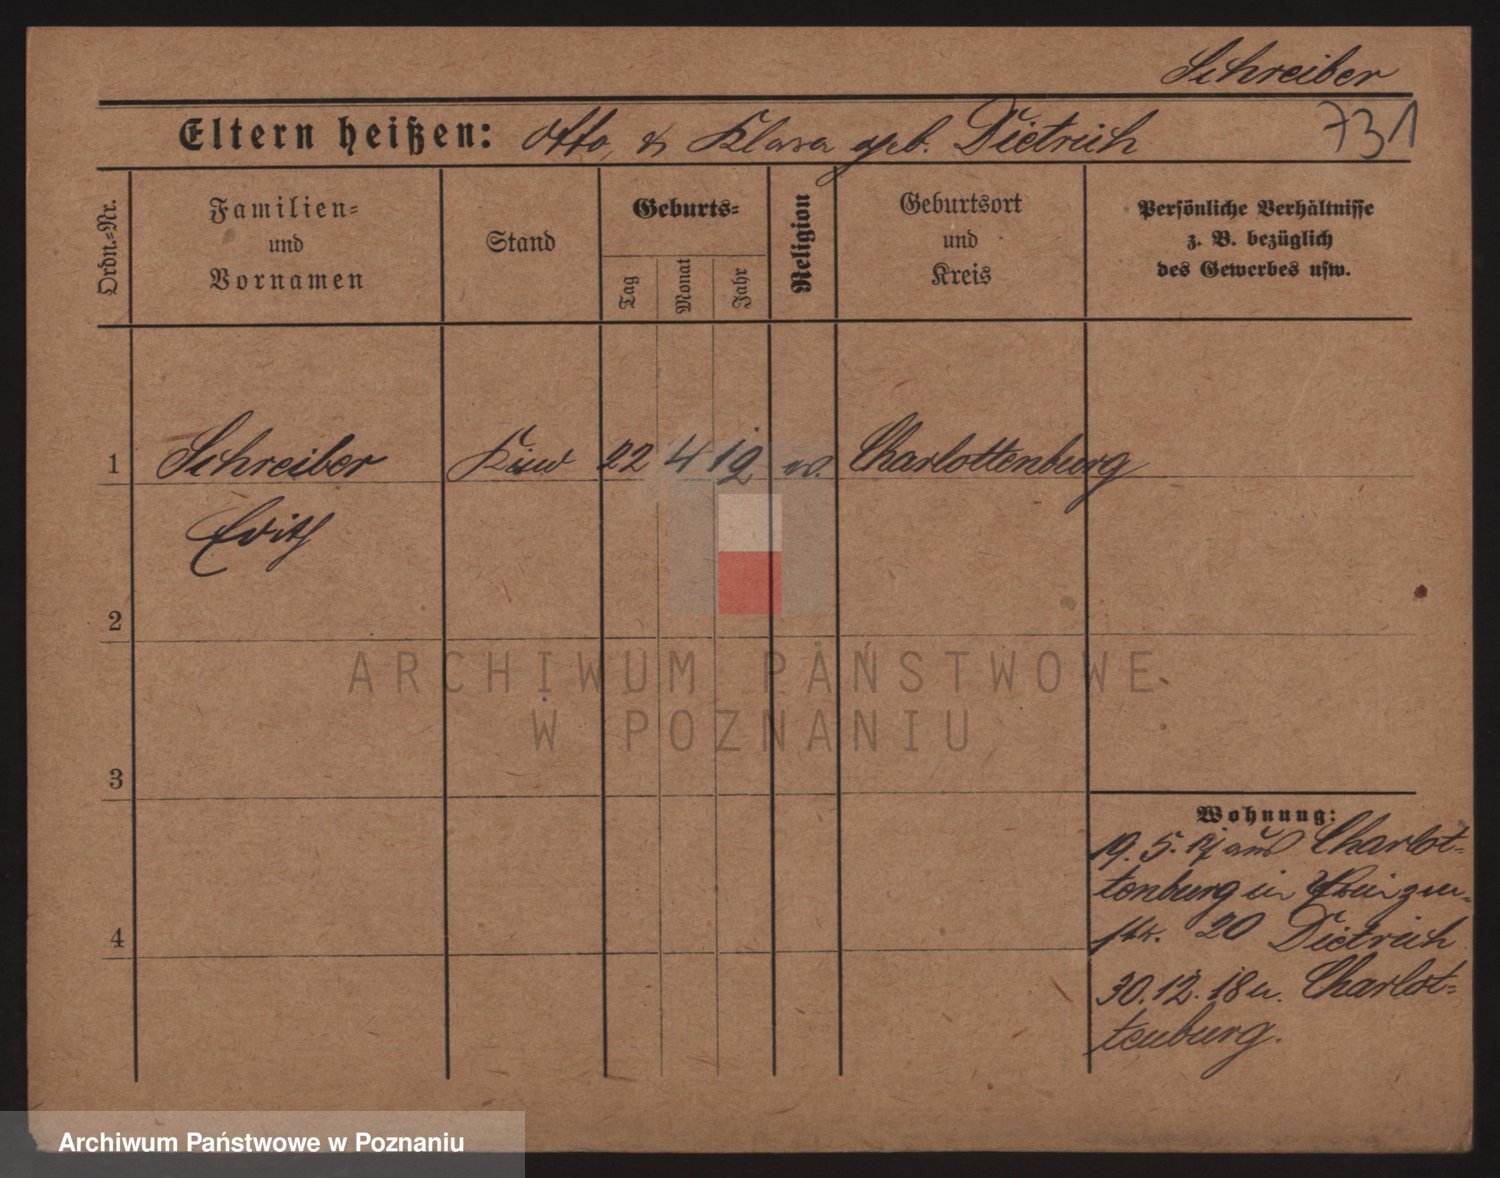 Schreiber
731
Eltern heißen: Otto, & Klara geb. Dietrich
Ordn.-Nr.
Familien-
und
Vornamen
Stand
Geburts-
Tag
Monat
Jahr
Religion
Geburtsort
und
Kreis
Persönliche Verhältnisse
z. B. bezüglich
des Gewerbes usw.
1 Schreiber Kind 22 4 12 ev. Charlottenburg
Edith
2
3
4
Wohnung:
19. 5. 17 aus Charlot-
tenburg in Prinzen-
str. 20 Dietrich
30. 12. 18 n. Charlot-
tenburg.
ARCHIWUM PAŃSTWOWE
W POZNANIU
Archiwum Państwowe w Poznaniu